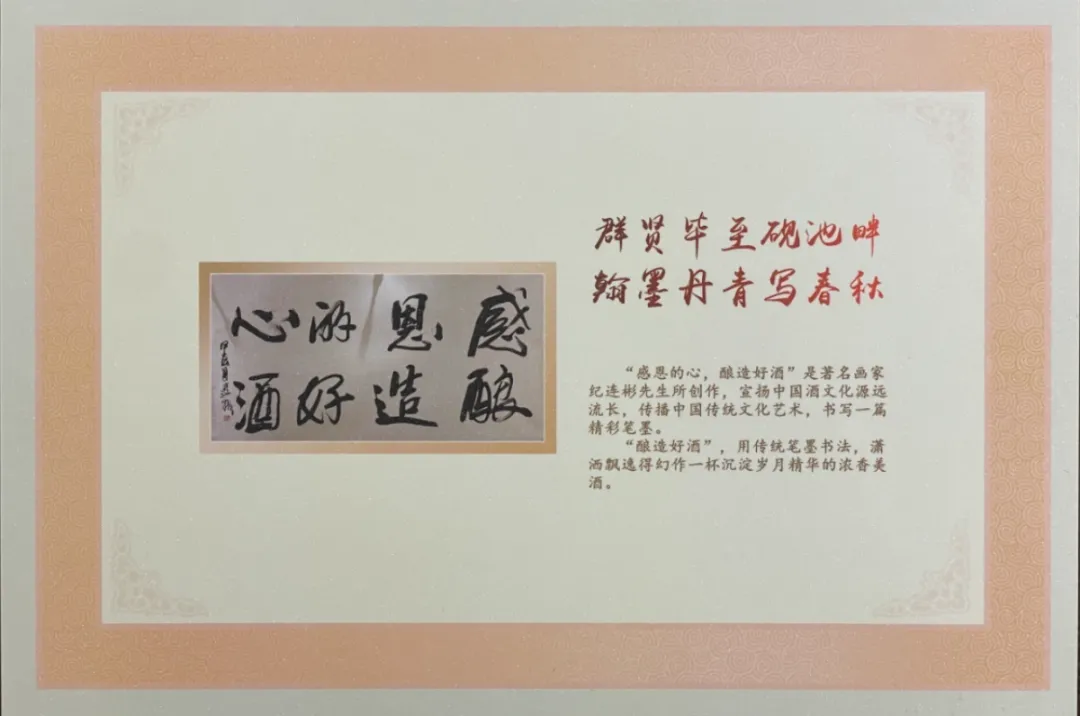 感恩的心
酿造好酒
群贤毕至砚池畔
翰墨丹青写春秋
“感恩的心，酿造好酒”是著名画家
纪连彬先生所创作，宣扬中国酒文化源远
流长，传播中国传统文化艺术，书写一篇
精彩笔墨。
“酿造好酒”，用传统笔墨书法，潇
洒飘逸得幻作一杯沉淀岁月精华的浓香美
酒。